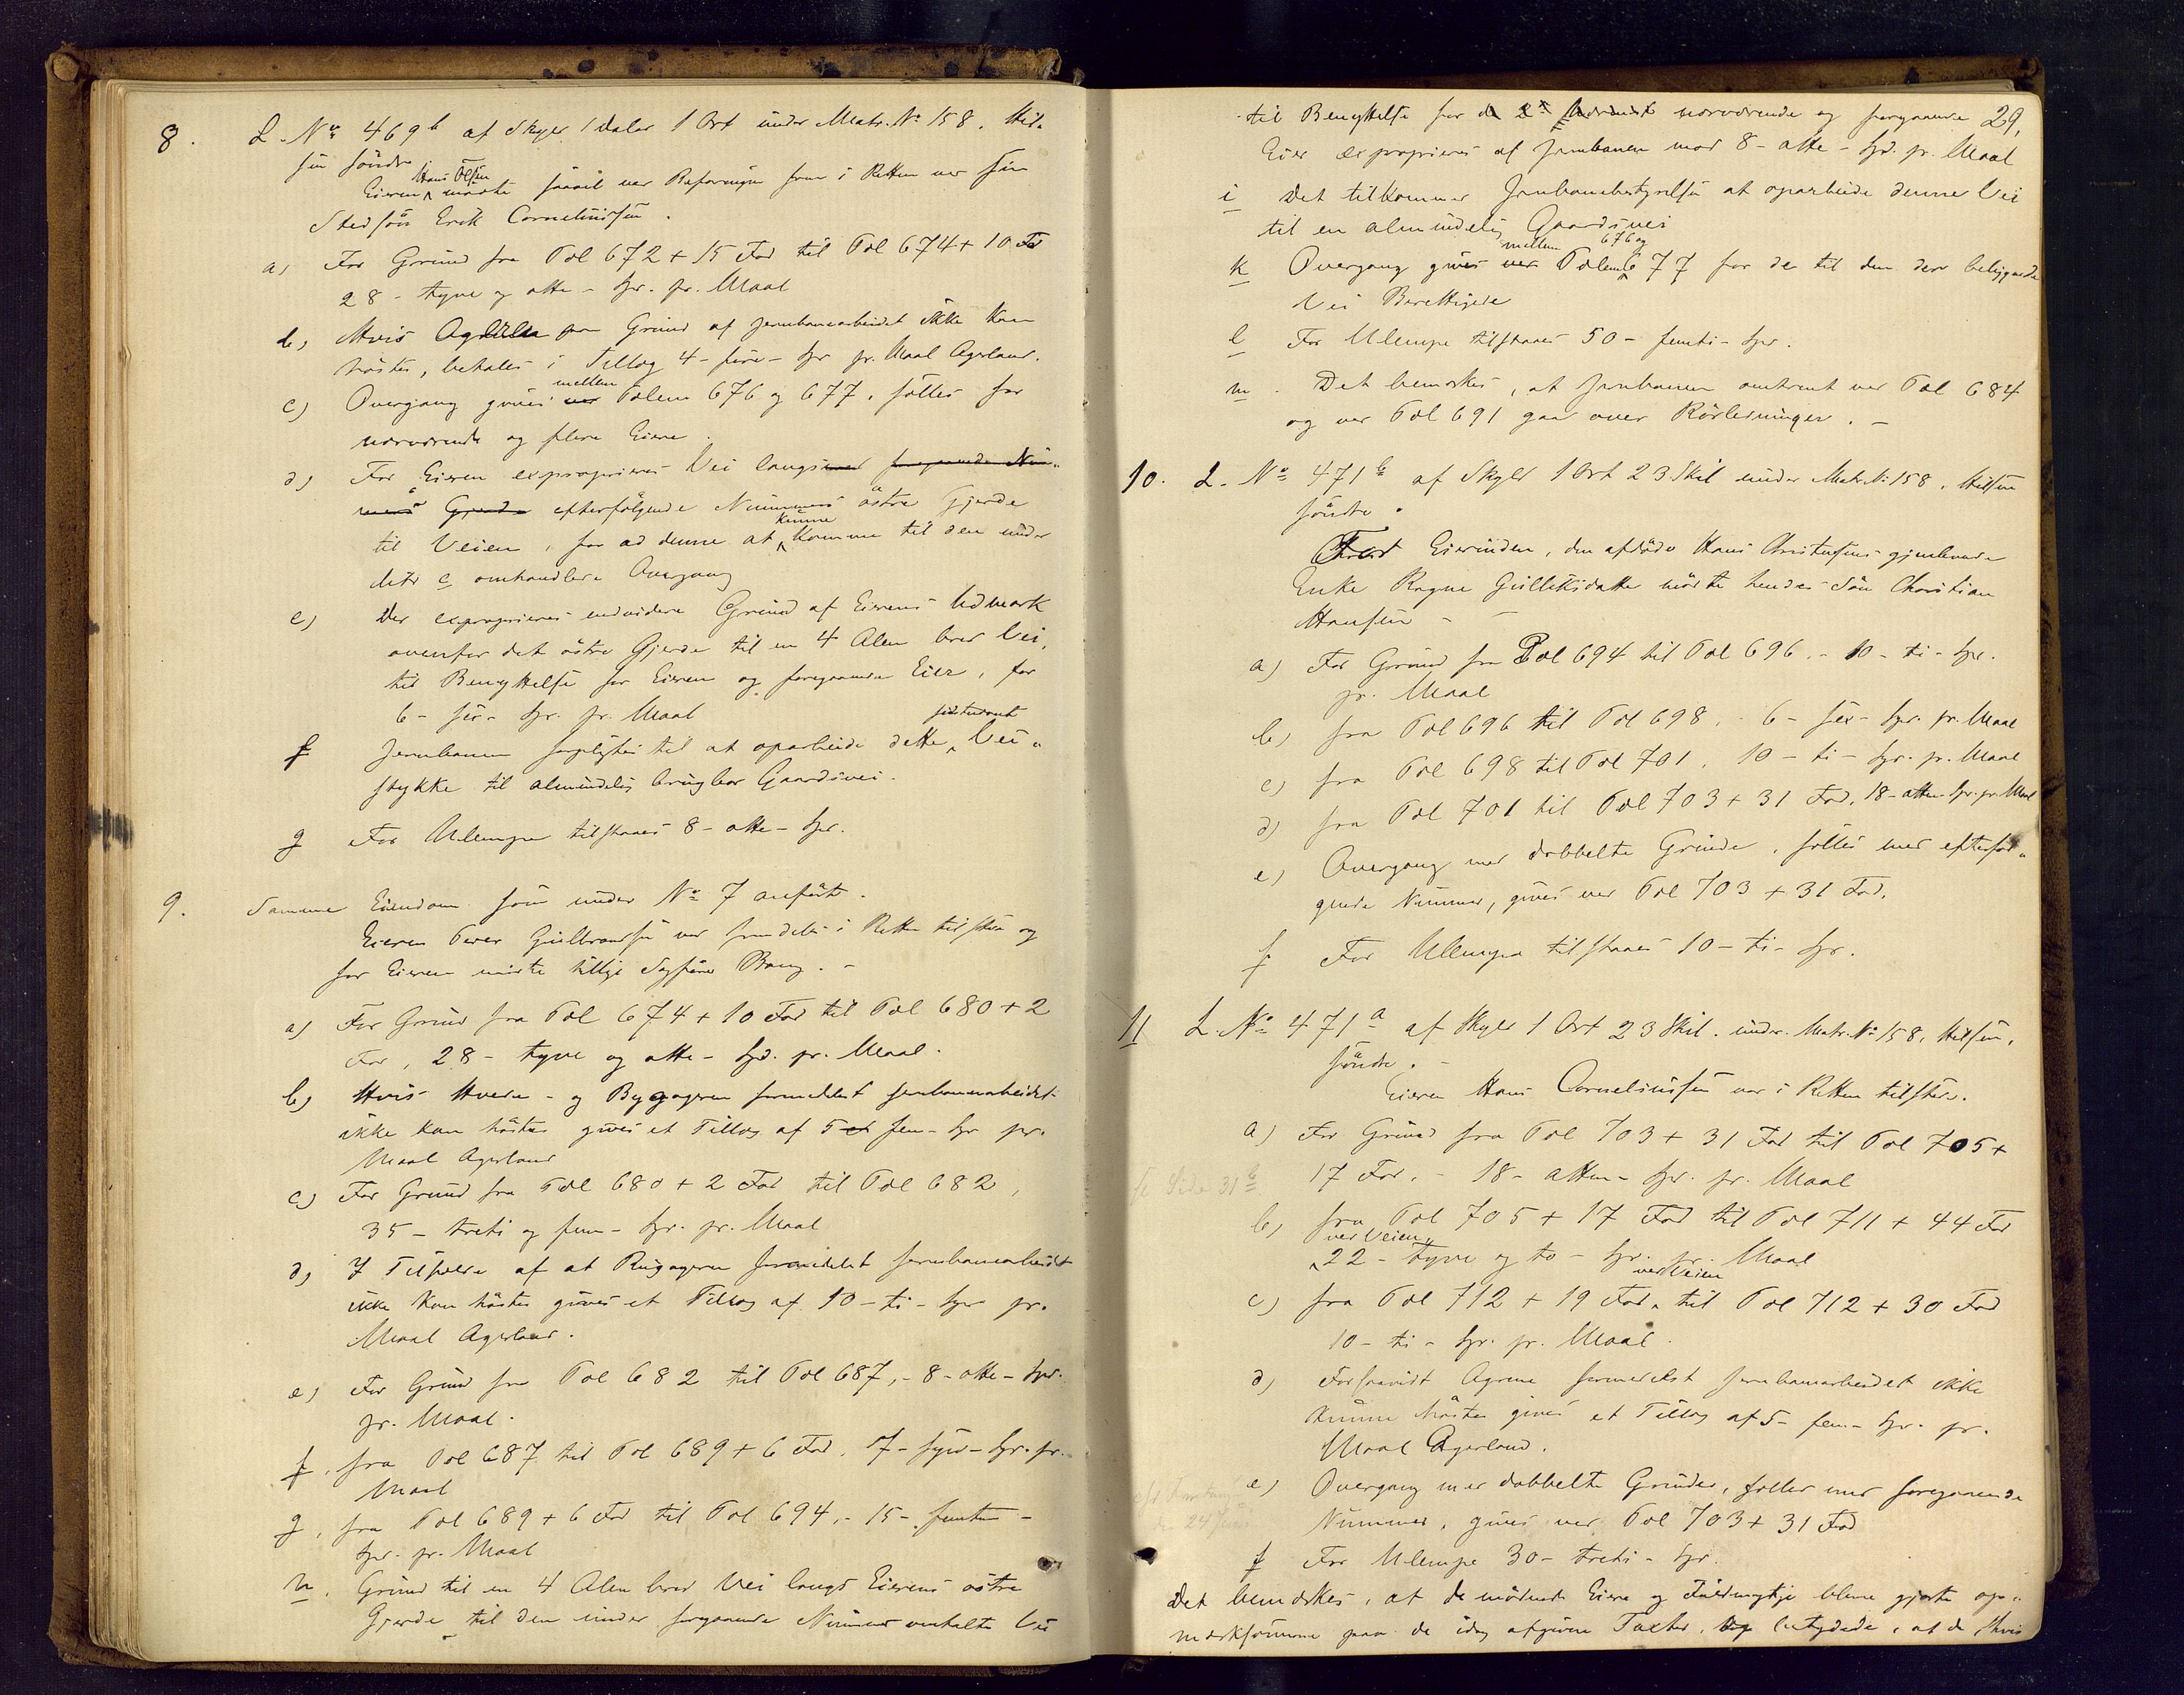 8. L. No 469b af Skyld 1 Daler 1 Ort under Matr. No 158. Hil-
sen söndre
Eieren Hans Olsen mödte saavel ved Befaringen som i Retten ved sin
Stedsön Erik Corneliussen.
a) For Grund fra Pæl 672 + 15 Fod til Pæl 674 + 10 Fod
28 - tyve og otte - Spd. pr. Maal
b) Hvis paa Grund af Jernbanearbeidet ikke kan
höstes, betales i Tillæg 4 - fire - Spd pr. Maal Agerland.
c) Overgang gives ved mellem Pælene 676 og 677, fælles for
nærværende og flere Eiere.
d) For Eieren exproprieres Vei langs med foregaaende Num-
mers Gjerde efterfölgende Nummers östre Gjerde
til Veien, for ad denne at kunne komme til den under
Litr c omhandlede Overgang
e) Der exproprieres endvidere Grund af Eierens Udmark
ovenfor det östre Gjerde til en 4 Alen bred Vei,
til Benyttelse for Eieren og foregaaende Eier, for
6 - sex - Spd. pr. Maal
f Jernbanen forpligtes til at oparbeide dette sidstnævnte Vei-
stykke til almindelig brugbar Gaardsvei.
g For Ulempe tilstaaes 8 - otte - Spd.
9. Samme Eiendom som under No 7 anfört.
Eieren Peder Gulbrandsen var fremdeles i Retten tilstede og
for Eieren mödte tillige Sagförer Bang. -
a) For Grund fra Pæl 674 + 10 Fod til Pæl 680 + 2
Fod, 28 - tyve og otte - Spd. pr. Maal.
b) Hvis Hvede - og Bygageren formedelst Jernbanearbeidet
ikke kan höstes gives et Tillæg af 5 fem - Spd pr.
Maal Agerland
c) For Grund fra Pæl 680 + 2 Fod til Pæl 682,
35 - treti og fem - Spd. pr. Maal
d) I Tilfælde af at Rugageren formedelst Jernbanearbeidet
ikke kan höstes gives et Tillæg af 10 - ti - Spd pr.
Maal Agerland.
e) For Grund fra Pæl 682 til Pæl 687, - 8 - otte - Spd.
pr. Maal.
f. fra Pæl 687 til Pæl 689 + 6 Fod, 7 - syv - Spd. pr.
Maal
g. fra Pæl 689 + 6 Fod til Pæl 694, - 15 - femten -
Spd. pr. Maal
h. Grund til en 4 Alen bred Vei langs Eierens östre
Gjerde til den under foregaaende Nummer omtalte Vei
29.
til Benyttelse for nærværende og foregaaende
Eier exproprieres af Jernbanen mod 8 - otte - Spd. pr. Maal
i Det tilkommer Jernbanebestyrelsen at oparbeide denne Vei
til en almindelig Gaardsvei
k Overgang gives ved mellem Pælene 676 og 677 for de til den der beliggende
Vei Berettigede
l For Ulempe tilstaaes 50 - femti - Spd.
m. Det bemærkes, at Jernbanen omtrent ved Pæl 684
og ved Pæl 691 gaar over Rörledninger. -
10. L. No 471b af Skyld 1 Ort 23 Skil under Matr. No 158, Hilsen
söndre.
For Eierinden, den afdöde Hans Christensens gjenlevende
Enke Ragne Gulliksdatter mödte hendes Sön Christian
Hansen -
a) For Grund fra Pæl 694 til Pæl 696. - 10 - ti - Spd.
pr. Maal
b) fra Pæl 696 til Pæl 698. - 6 - sex - Spd. pr. Maal
c) fra Pæl 698 til Pæl 701, 10 - ti - Spd. pr. Maal
d) fra Pæl 701 til Pæl 703 + 31 Fod. 18 - atten - Spd. pr. Maal
e) Overgang med dobbelte Grinde, fælles med efterföl-
gende Nummer, gives ved Pæl 703 + 31 Fod.
f For Ulempe tilstaaes 10 - ti - Spd.
11 L. No 471a af Skyld 1 Ort 23 Skil. under Matr. No 158, Hilsen,
söndre. -
Eieren Hans Corneliussen var i Retten tilstede.
a) For Grund fra Pæl 703 + 31 Fod til Pæl 705 +
17 Fod. - 18 - atten - Spd. pr. Maal
se Side 31b
b) fra Pæl 705 + 17 Fod til Pæl 711 + 44 Fod
ved Veien, 22 - tyve og to - Spd. pr. Maal
c) fra Pæl 712 + 19 Fod ved Veien til Pæl 712 + 30 Fod
10 - ti - Spd. pr. Maal.
d) Forsaavidt Agrene formedelst Jernbanearbeidet ikke
kunne höstes gives et Tillæg af 5 - fem - Spd. pr.
Maal Agerland.
e) Overgang med dobbelte Grinder, fælles med foregaaende
Nummer, gives ved Pæl 703 + 31 Fod
f For Ulempe 30 - treti - Spd.
Det bemærkes, at de mödende Eiere og Fuldmægtige bleve gjorte op-
mærksomme paa de idag afgivne Taxter, betydede, at de hvis